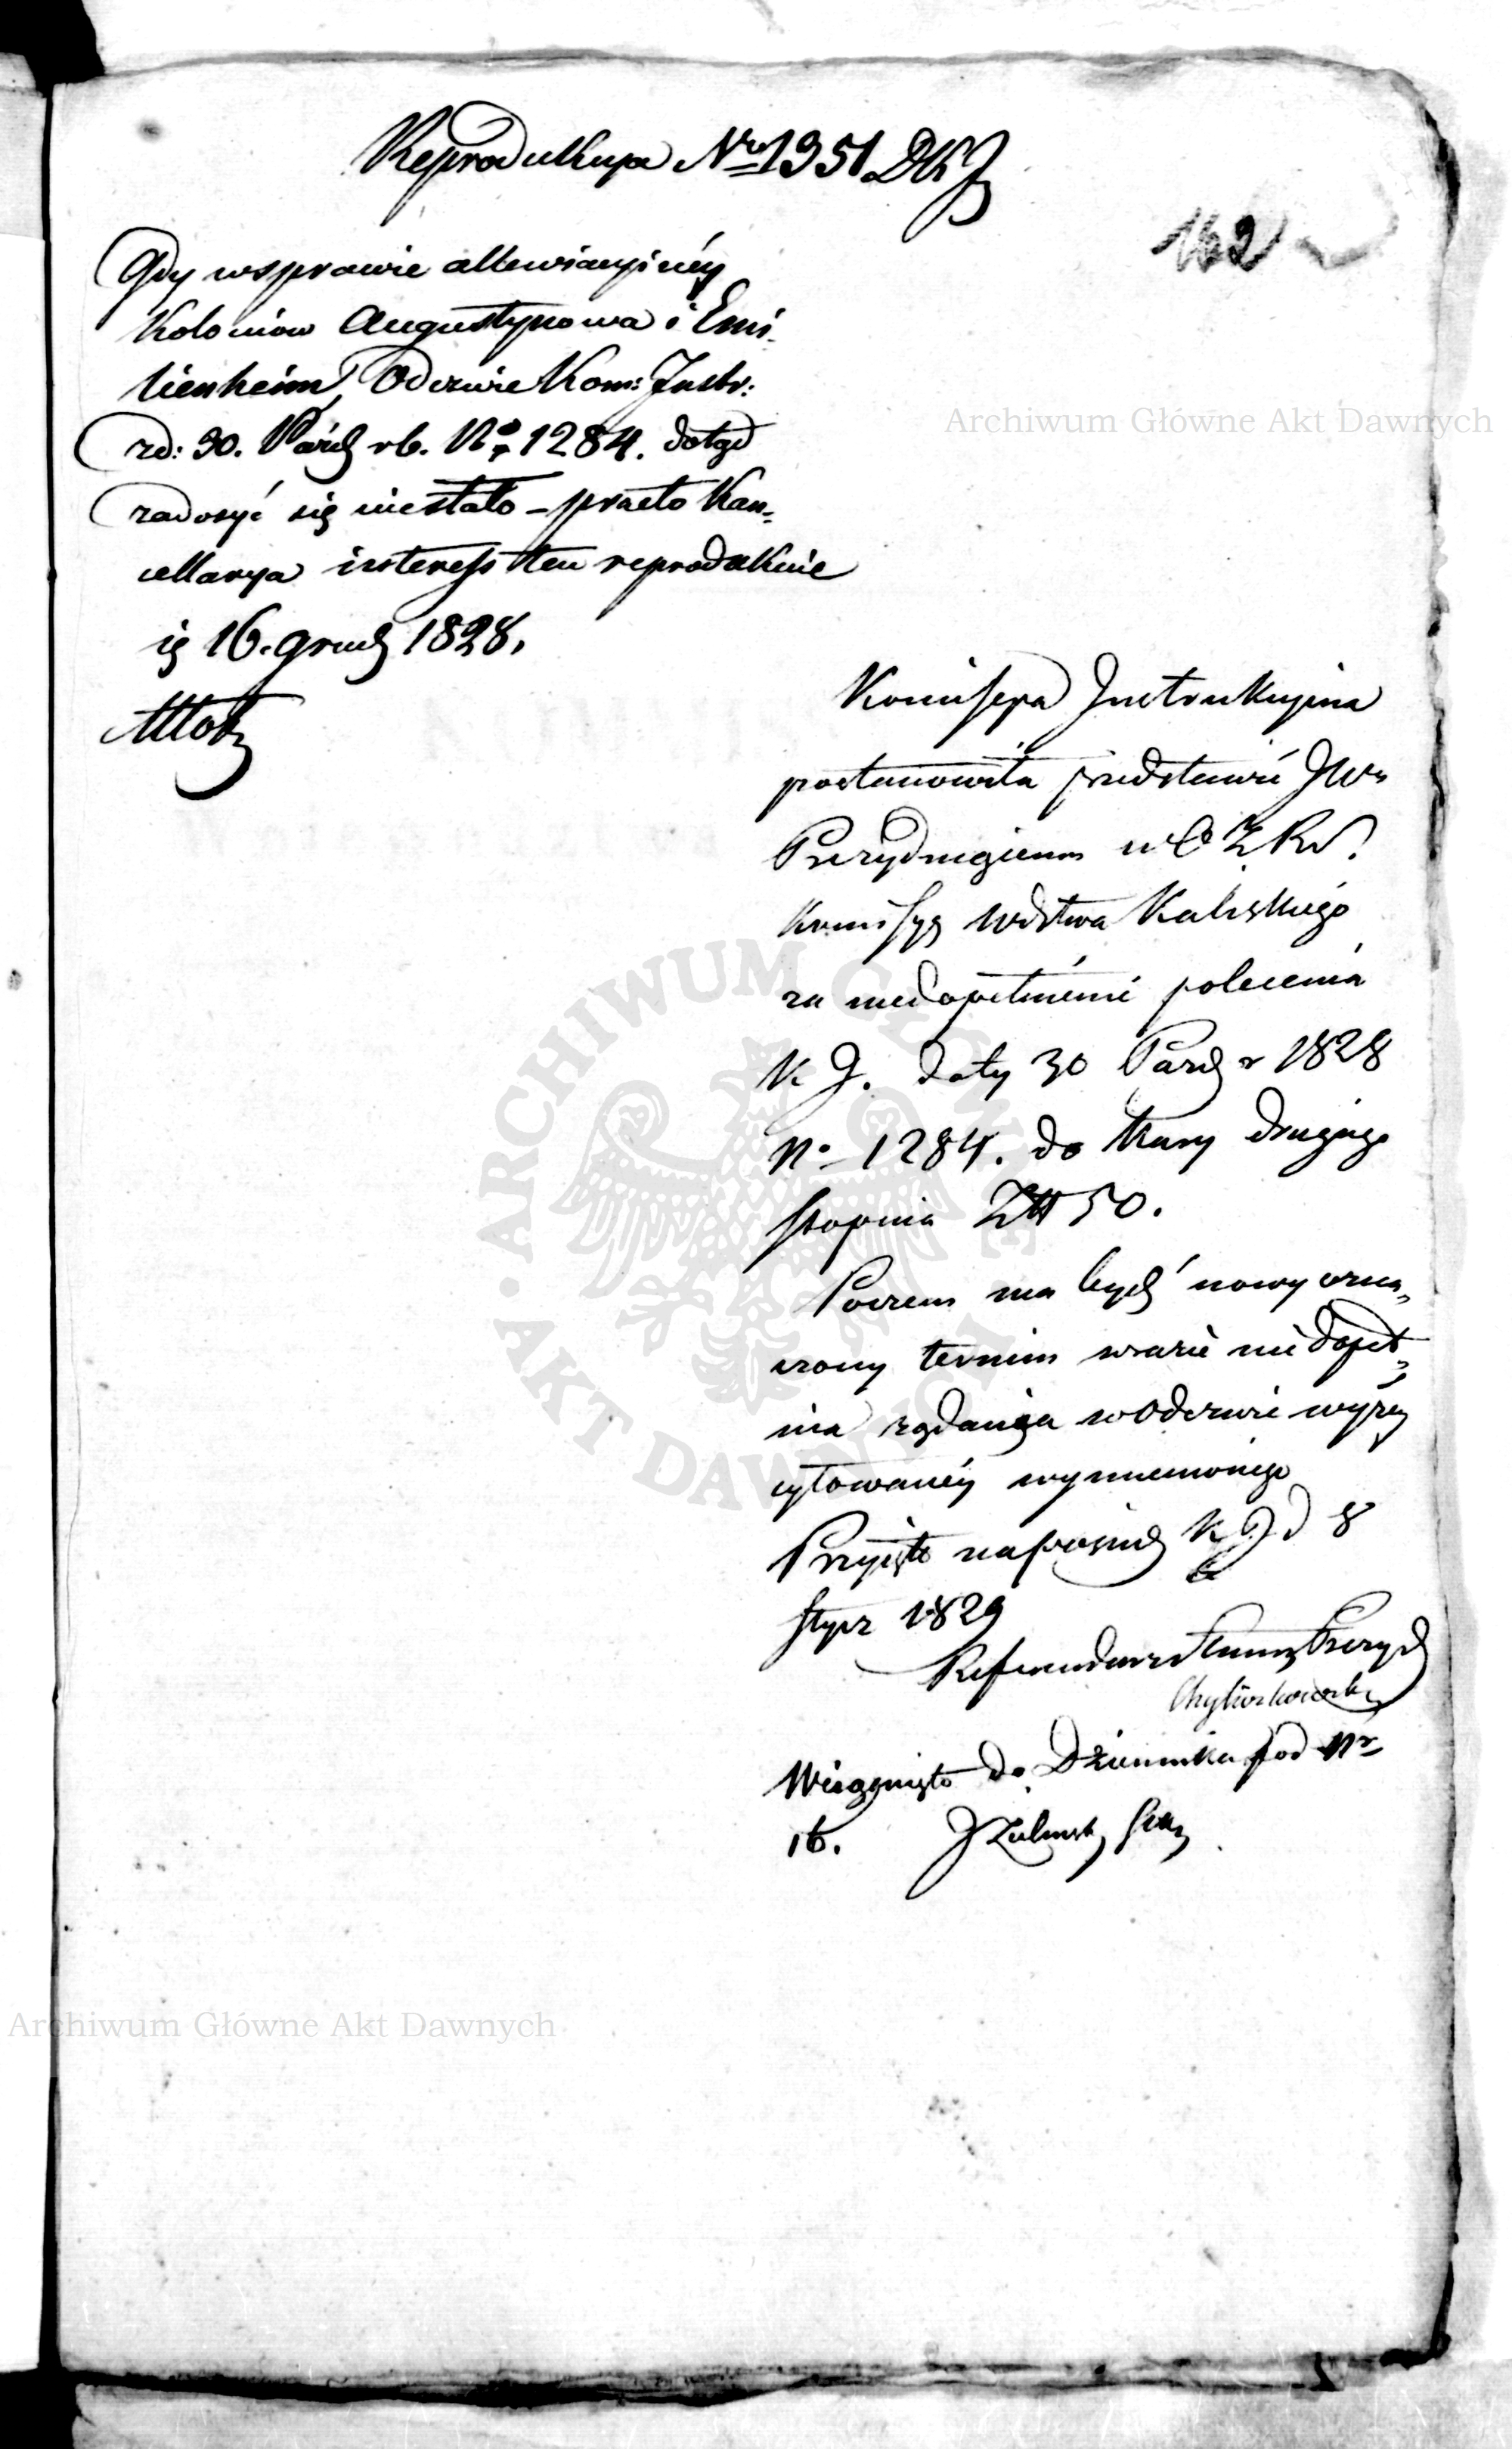 Reprodukcya Nro 1951 DKJ
162
Gdy wsprawie allewiacyinéy
Koloniów Augustynowa i Emi-
lienheim, Odezwie Kom: Instr:
zd: 30. Paźd rb. No 1284. dotąd
zadosyć się niestało – przeto Kan-
cellarya interess ten reprodukuie
16. grud 1828.
Kommissya Instrukcyina
postanowiła przedstawić JW
Prezyduiącemu w
Kommissyą Wdztwa Kaliskiego
za niedopełnienie polecenia
K J. daty 30 Paźd r 1828
No 1284. do kary drugiego
stopnia Zł 50.
Poczem ma bydź nowy ozna-
czony termin wrazie niedopeł-
nia żądania wOdezwie wyżey
cytowanéy wymienionego
Przyięto naposiedz K J d 8
Stycz 1829
Referendarz Stanu Prezyd
Wciągnięto do Dziennika pod Nr
16.
Archiwum Główne Akt Dawnych
ARCHIWUM GŁÓWNE
AKT DAWNYCH
Archiwum Główne Akt Dawnych